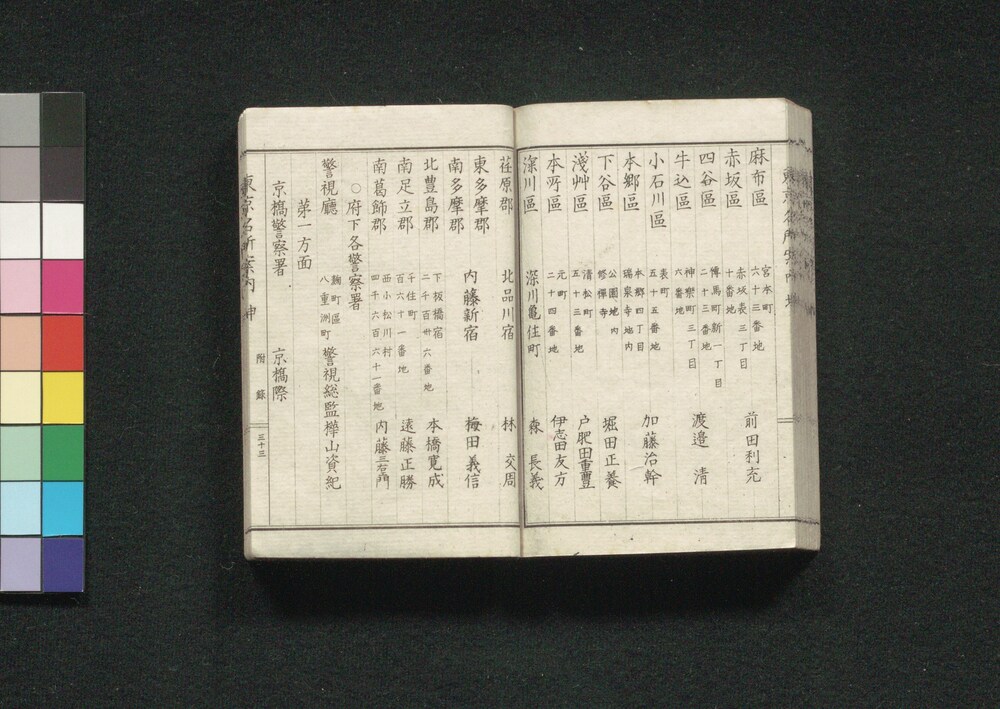 麻布區 宮村町六十三番地 前田利充
赤坂區 赤坂表三丁目十番地
四谷區 傳馬町新一丁目二十三番地
牛込區 神樂町三丁目六番地 渡邉 清
小石川區 表町五十五番地 加藤治幹
本郷區 本郷四丁目瑞泉寺地内
下谷區 公園地内修禪寺 堀田正養
淺艸區 清松町五十三番地 戸肥田重豊
本所區 元町二十四番地 伊志田友方
深川區 深川亀住町 森 長義
荏原郡 北品川宿 林 交周
東多摩郡
南多摩郡 内藤新宿 梅田義信
北豊島郡 下板橋宿二千百廿六番地 本橋寛成
南足立郡 千住町百六十一番地 遠藤正勝
南葛飾郡 西小松川村四千六百六十一番地 内藤三右衛門
○府下各警察署
警視廳 麹町區八重洲町 警視総監樺山資紀
第一方面
京橋警察署 京橋際
東京名所案内 附録 三十三